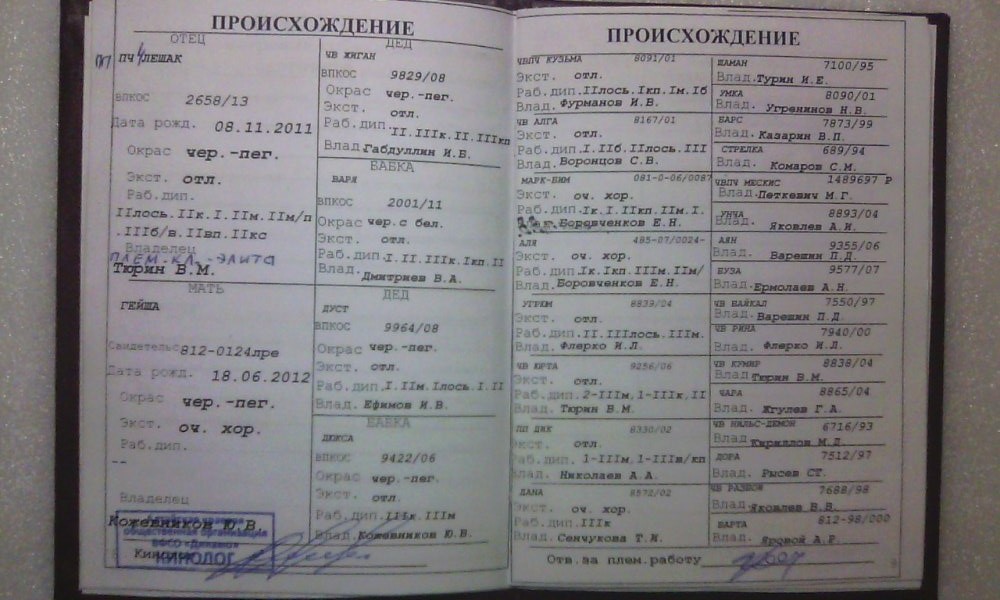 ПРОИСХОЖДЕНИЕ
ОТЕЦ
ПЧ ЛЕШАК
ВПКОС 2658/13
Дата рожд. 08.11.2011
Окрас чер.-пег.
Экст. отл.
Раб.дип.
IIлось.IIк.I.IIм.IIм/п
.IIIб/в.IIвп.IIкс
Владелец
ПЛЕМ.КЛ.-ЭЛИТА
Тюрин В.М.
МАТЬ
ГЕЙША
Свидетельс 812-0124лре
Дата рожд. 18.06.2012
Окрас чер.-пег.
Экст. оч. хор.
Раб.дип.
--
Владелец
Кожевников Ю.В.
общественная организация
ВФСО «Динамо»
КИНОЛОГ
ДЕД
ЧВ ЖИГАН
ВПКОС 9829/08
Окрас чер.-пег.
Экст. отл.
Раб.дип.II.IIIк.II.IIIкп
Влад.Габдуллин И.В.
БАБКА
ВАРЯ
ВПКОС 2001/11
Окрас чер.с бел.
Экст. отл.
Раб.дип.I.II.IIIк.Iкп.II
Влад.Дмитриев В.А.
ДЕД
ДУСТ
ВПКОС 9964/08
Окрас чер.-пег.
Экст. отл.
Раб.дип.I.IIм.Iлось.I.II
Влад.Ефимов И.В.
БАБКА
ДЮКСА
ВПКОС 9422/06
Окрас чер.-пег.
Экст. отл.
Раб.дип.IIIк.IIIм
Влад.Кожевников Ю.В.
ПРОИСХОЖДЕНИЕ
ЧВПЧ КУЗЬМА 8091/01
Экст. отл.
Раб.дип.IIлось.Iкп.Iм.Iб
Влад.Фурманов И.В.
ЧВ АЛГА 8167/01
Экст. отл.
Раб.дип.I.IIб.IIлось.III
Влад.Воронцов С.В.
МАРК-БИМ 081-0-06/0087
Экст. оч. хор.
Раб.дип.Iк.I.IIкп.IIм.I.
Боровченков Е.Н.
АЛЯ 485-07/0024-
Экст. оч. хор.
Раб.дип.Iк.Iкп.IIIм.IIм/
Влад.Боровченков Е.Н.
УГРЮМ 8839/24
Экст. отл.
Раб.дип.II.IIIлось.IIIм.
Влад. Флерко И.Л.
ЧВ ЮРТА 9256/06
Экст. отл.
Раб.дип.2-IIIм,1-IIIк,II
Влад. Тюрин В.М.
ПП ДИК 8330/02
Экст. отл.
Раб.дип. 1-IIIм,1-IIIм/кп
Влад. Николаев А.А.
ДАНА 8572/02
Экст. оч. хор.
Раб.дип.IIIк
Влад. Сенчукова Т.И.
ШАМАН 7100/95
Влад.Турин И.Е.
УМКА 8090/01
Влад. Угренинов Н.В.
БАРС 7873/99
Влад.Казарин В.П.
СТРЕЛКА 689/94
Влад. Комаров С.М.
ЧВПЧ МЕСКИС 1489697 Р
Влад.Петкевич М.Г.
УНЧА 8893/04
Влад. Яковлев А.И.
АЯН 9355/06
Влад. Варешин П.Д.
БУЗА 9577/07
Влад. Ермолаев А.Н.
ЧВ БАЙКАЛ 7550/97
Влад.Варешин П.Д.
ЧВ РИНА 7940/00
Влад. Флерко И.Л.
ЧВ КУМИР 8838/04
Влад.Тюрин В.М.
ЧАРА 8865/04
Влад. Жгулев Г.А.
ЧВ НИЛЬС-ДЕМОН 6716/93
Влад.Кириллов М.Д.
ДОРА 7512/97
Влад. Рысев СТ.
ЧВ РАЗБОЙ 7688/98
Влад.Яковлев В.В.
ВАРТА 812-98/000
Влад. Яровой А.Р.
Отв.за плем.работу